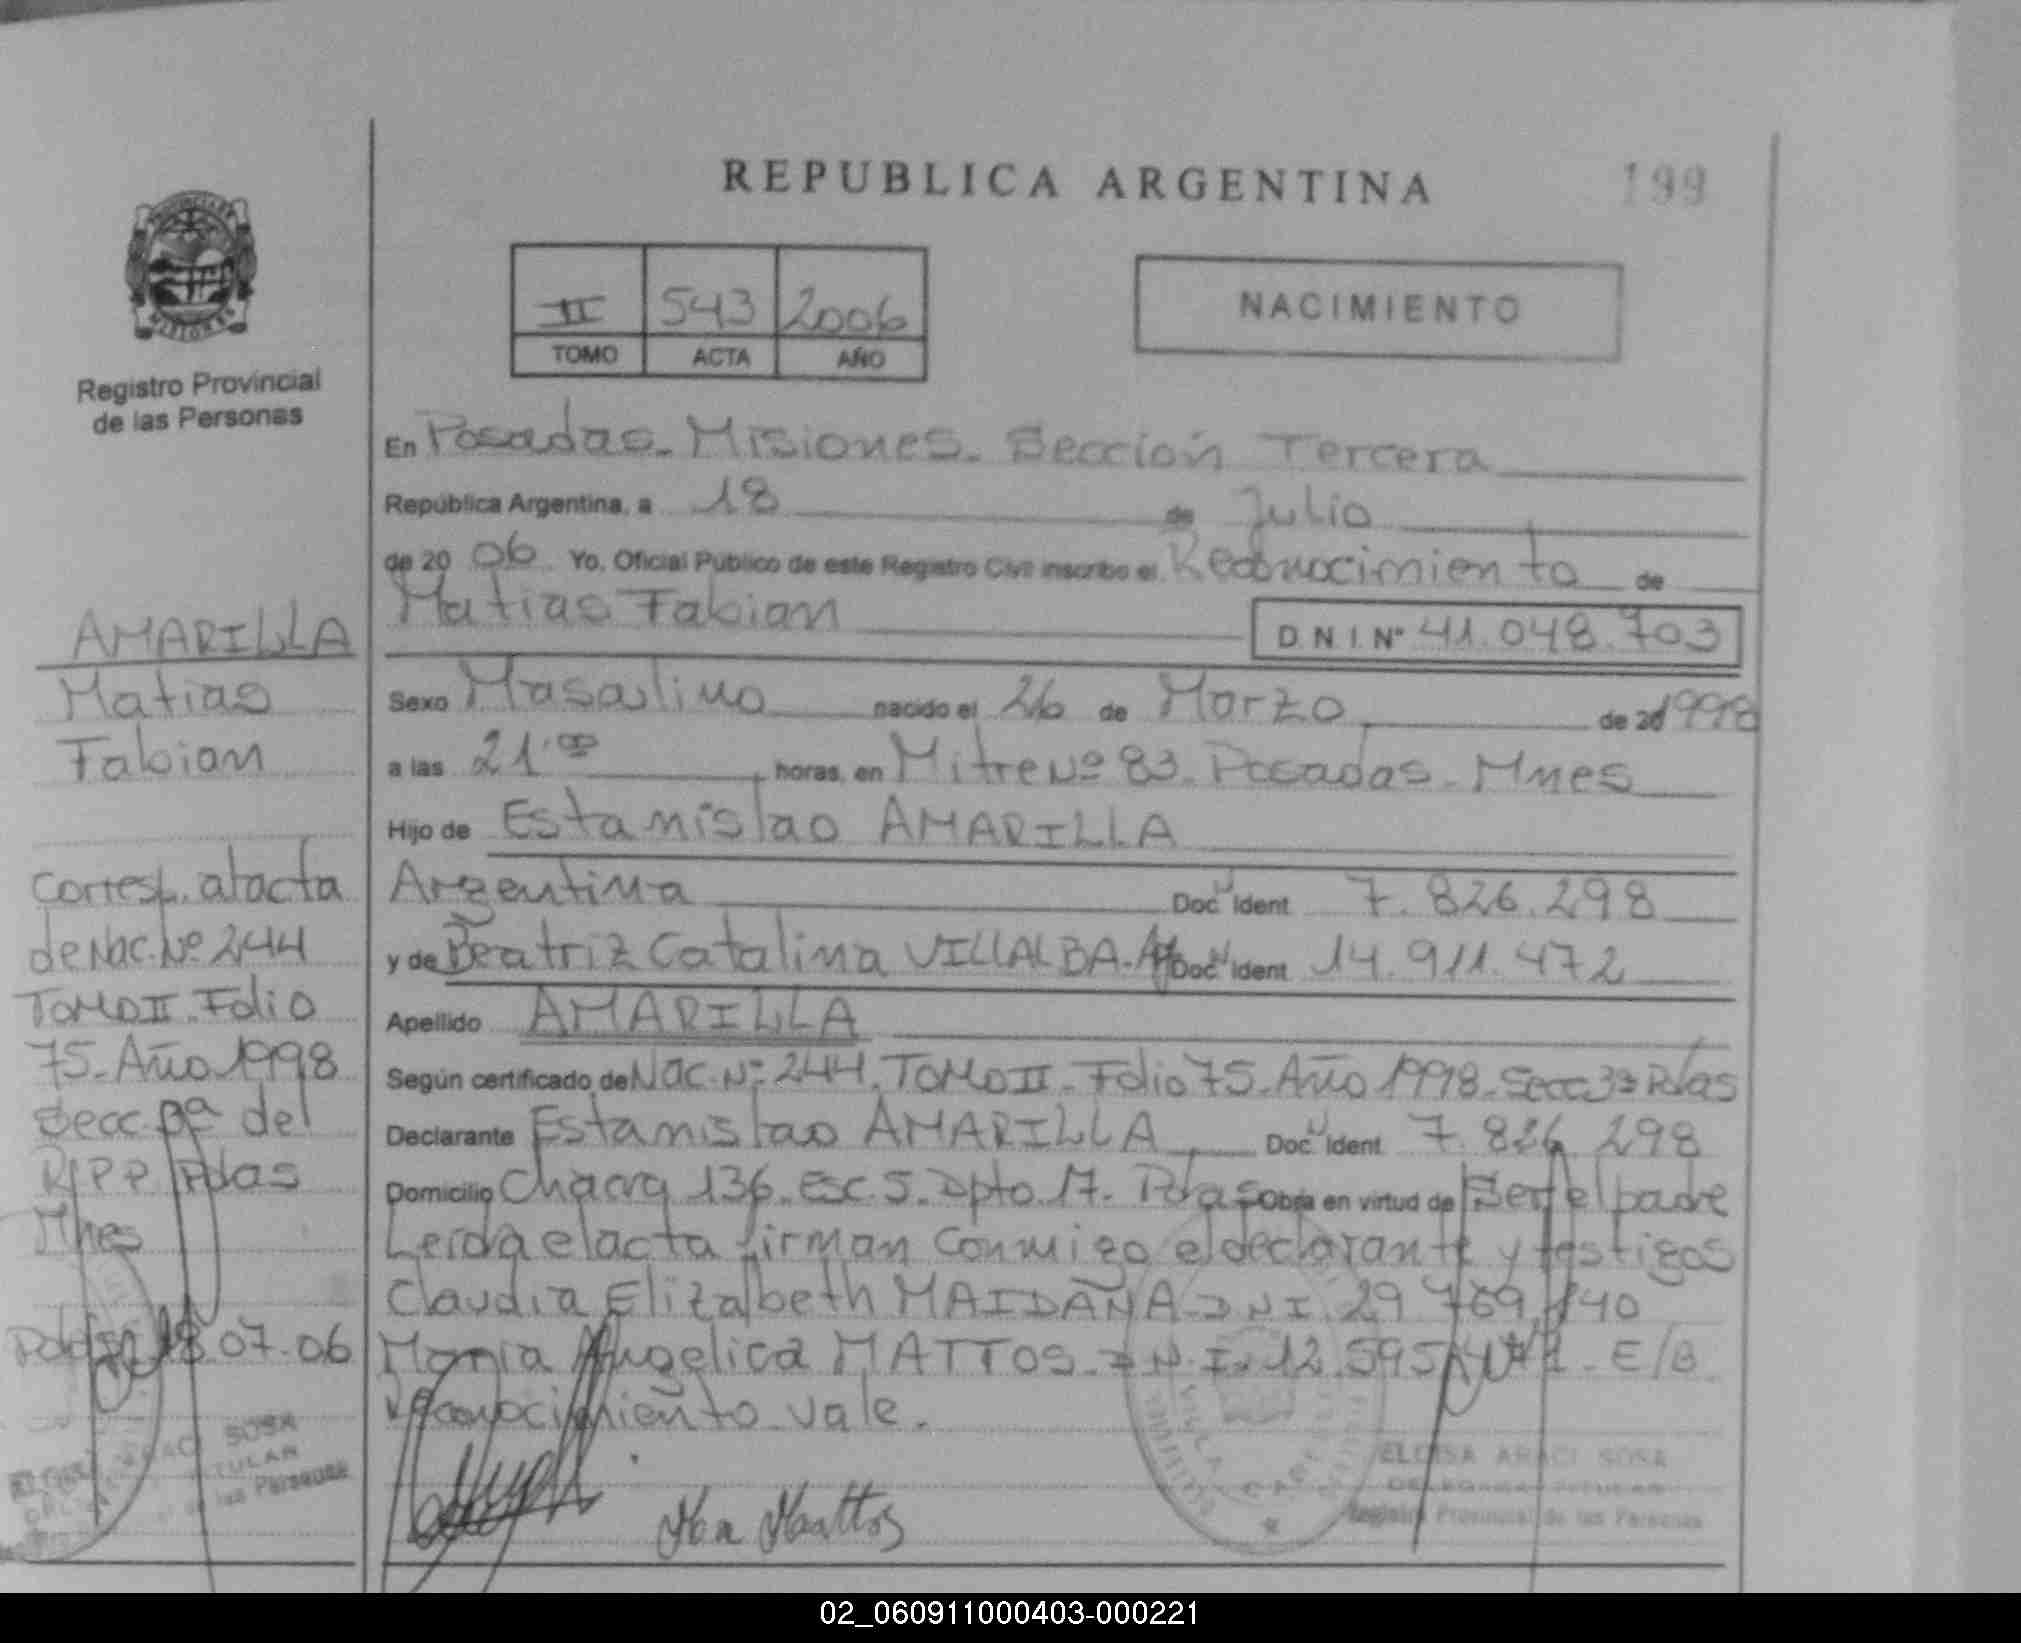 REPUBLICA ARGENTINA
199
II 543 2006
TOMO ACTA AÑO
NACIMIENTO
MISIONES
Registro Provincial
de las Personas
AMARILLA
Matias
Fabian
Corresp. al acta
de Nac. Nº 244
TOMO II Folio
75. Año 1998
Secc. 3ª del
R.P.P. Pdas
Mnes
18.07.06
SOSA
TITULAR
de las Personas
En Posadas. Misiones. Sección Tercera
República Argentina, a 18 de Julio
de 20 06 Yo, Oficial Público de este Registro Civil inscribo el Reconocimiento de
Matias Fabian
D.N.I. Nº 41.048.703
Sexo Masculino nacido el 26 de Marzo de 20 1998
a las 21.00 horas, en Mitre Nº 83. Posadas. Mnes
Hijo de Estanislao AMARILLA
Argentina Doc. Ident 7.826.298
y de Beatriz Catalina VILLALBA. Doc. Ident 14.911.472
Apellido AMARILLA
Según certificado de Nac. Nº 244. TOMO II. Folio 75. Año 1998. Secc 3ª Pdas
Declarante Estanislao AMARILLA Doc. Ident 7.826.298
Domicilio Chacra 136. Esc. 5. Dpto. 17. Pdas Obra en virtud de Ser el padre
Leída el acta firman conmigo el declarante y testigos
Claudia Elizabeth MAIDANA. D.N.I. 29.769.140
Maria Angelica MATTOS. D.N.I. 12.595. E/B
Reconocimiento vale.
Mattos
ELOISA ARACI SOSA
DELEGADA TITULAR
Registro Provincial de las Personas
02_060911000403-000221